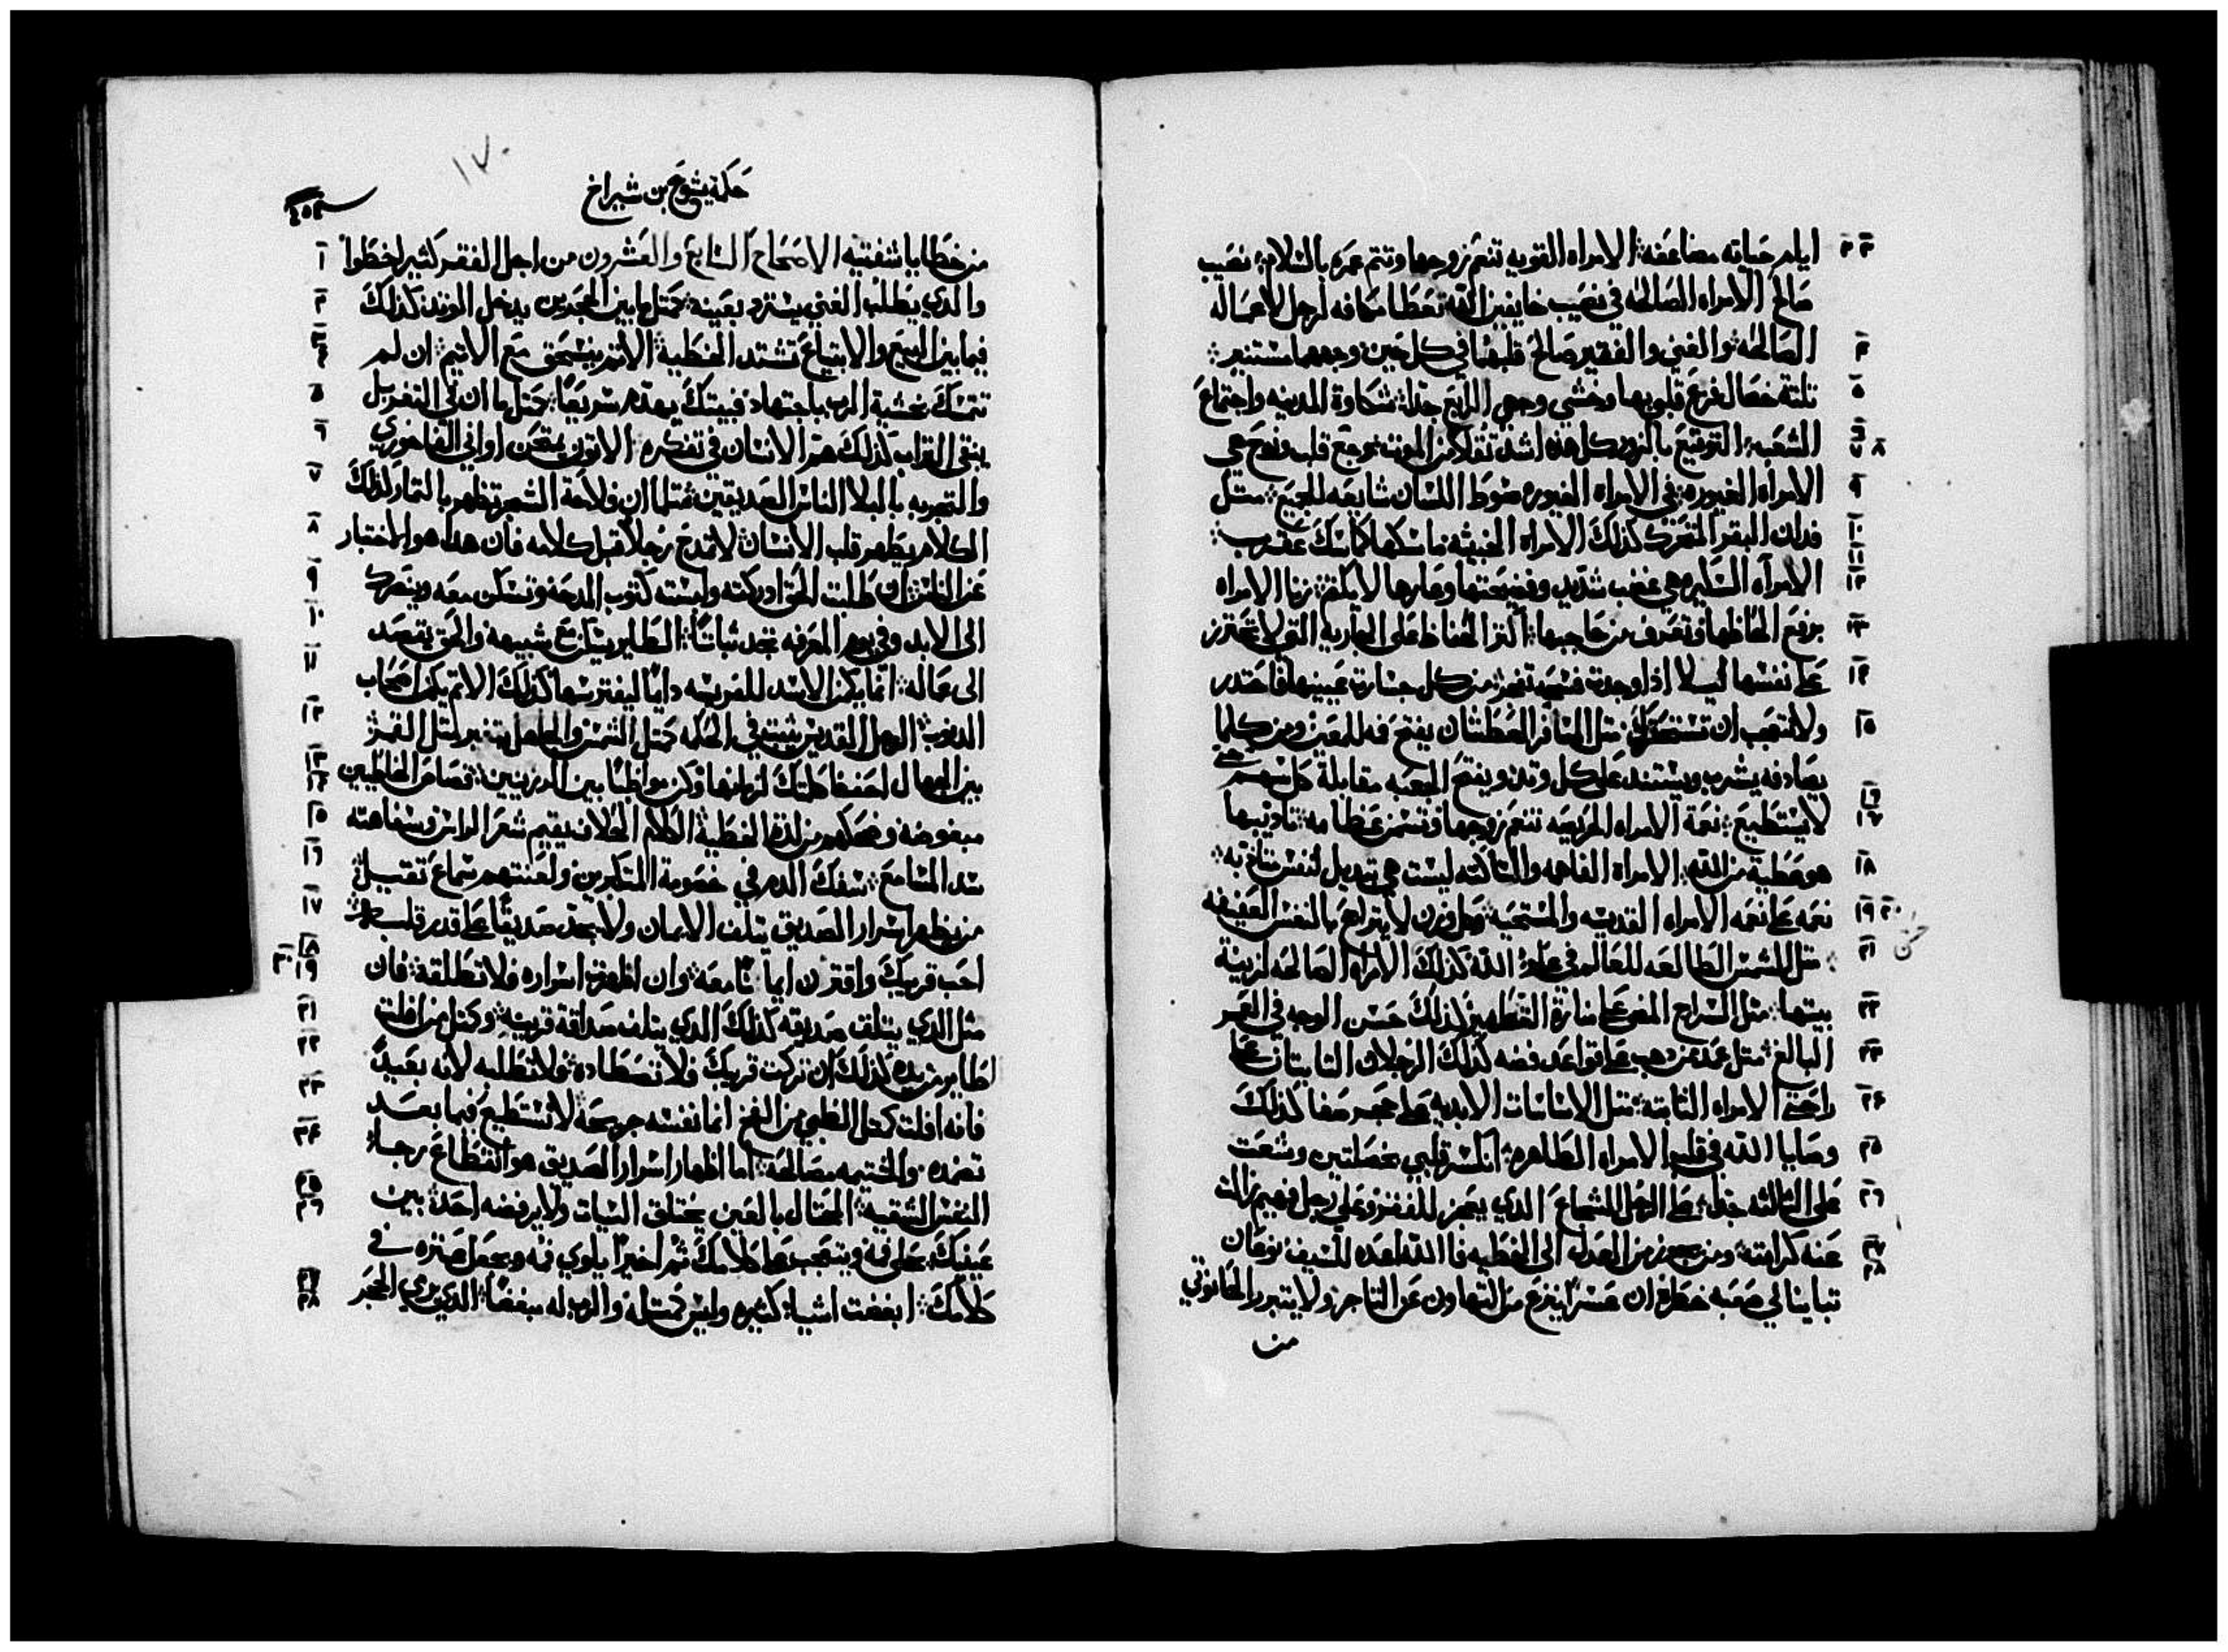 ايام حياته مضاعفة الامراه القويه تنعم زوجها وتتم عمره بالسلام نصيب ٢ ٣
صالح الامراه الصالحه في نصيب خايفين الله تعطا مكافه لرجل لاعماله
الصالحه والغني والفقير صالح قلبهما في كل حين وجههما مستنير ٤
تلتة خصال فزع قلبي بها وخشي وجهي الرابع جدا شكاوة المدينه واجتماع ٥
الشعب التوقيع بالزور كل هذه اشد تقلا من الموت توجع قلب ونوح هي ٦ ٧ ٨
الامراه الغيوره في الامراه الغيوره سوط اللسان شايعه للجميع متل ٩
فدان البقر المتحرك كذلك الامراه الخبيثه ماسكها كماسك عقرب ١٠
الامراه السكيره هي غضب شديد وفضيحتها وعارها لا يكتم زنا الامراه ١١ ١٢
برفع الحاظها وتعرف من حاجبها اكتر الحفاظ على الجاريه التي لا تحترز ١٣
على نفسها ليلا اذا وجدت فسحه تفجر من كل جسارة عينيها فاحتدر ١٤
ولا تتعجب ان تستحقرك متل المسافر العطشان يفتح فمه للعين ومن كلما ١٥
يصادفه يشرب ويستند على كل وتد ويفتح الجعبه مقابلة كل سهم حتي
لا يستطيع نعمة الامراه الحريصه تنعم زوجها وتسمن عظامه تاديبها ١٦ ١٧
هو عطية من الله الامراه الفاهمه والساكته ليست هي تبديل لنفس متادبه ١٨
نعمه على نعمه الامراه القديسه والمستحيه وكل وزن لا يتراجح بالنفس العفيفه ١٩ ٢٠
متل الشمس الطالعه للعالم في علو الله كذلك الامراه الصالحه لزينة ٢١
بيتها متل السراج المضي على منارة التطهير كذلك حسن الوجه في العمر ٢٢
البالغ متل عمد من دهب على قواعد فضه كذلك الرجلان التابتان على ٢٣
راحتي الامراه التابته متل الاساسات الابديه على حجر صفا كذلك ٢٤
وصايا الله في قلب الامراه الطاهره انكسر قلبي بخصلتين وشعت ٢٥
على التالته جدا على الرجل الشجاع الدي يعجز للفقر وعلى رجل فهيم زالت ٢٦
عنه كرامته ومن يجوز من العدل الى الخطيه فالله اعده للسيف نوعان ٢٧
تباينا لي صعبه خطره ان عسرا ينزع من التهاون عن التاجر ولا يتبرر الحانوتي ٢٨
من
١٧٠
حكمة يشوع بن شيراخ
من خطايا شفتيه الاصحاح السابع والعشرون من اجل الفقر كثير اخطوا ١
والدي يطلب الغني يسترد بعينه كمتل ما بين الحجرين يدخل الوتد كذلك ٢
فيما بين البيع والابتياع تشتد الخطية الاتم ينسحق مع الاتيم ان لم ٣ ٤
تتمسك بخشية الرب باجتهاد فبيتك يهدم سريعا كمتل ما ان في التغربل ٥
يبقى التراب كذلك هم الانسان في تفكره الاتون يمتحن اواني الفاخوري ٦
والتجربه بالبلا الناس الصديقين متلما ان فلاحة الشجر تظهر بالتمار كذلك ٧
الكلام يظهر قلب الانسان لا تمدح رجلا قبل كلامه فان هدا هو اختبار ٨
عن الناس ان طلبت الحق ادركته ولبسته كتوب المدحه وتسكن معه وينصرك ٩
الى الابد وفي يوم المعرفه تجد ثباتا الطاير يتازع شبيهه والحق يقصد ١٠
الى عماله انما يكمن الاسد للفريسه دايما ليفترسها كذلك الاتم يكمن اصحاب ١١
الدنوب الرجل القديس يتبت في الحكمه كمتل الشمس والجاهل يتغير متل القمر ١٢
بين الجهال احفظ كلمتك لزمانها وكن مواظبا بين الدرينيين قصاص الخاطيين ١٣ ١٤
مبغوضه وضحكهم من لذة الخطية الكلام الحلاف يقيم شعر الراس وسفاهته ١٥
سد المسامع سفك الدم في خصومة المتكبرين ولعنتهم سماع تقيل ١٦
من يظهر اسرار الصديق يتلف الايمان ولا يجد صديقا على قدر قلبه ١٧
احب قريبك واقترن ايما نا معه وان اظهرت اسراره فلا تطلقه فان ١٨ ١٩ ٢٠
متل الدي يتلف صديقه كذلك الدي يتلف صداقة قرينه وكمتل من افلت ٢١
طاير من يده كذلك ان تركت قريبك فلا تصطاده فلا تطلبه لانه بعيد ٢٢
فانه افلت كمتل الظبي من الفخ انما نفسه جريحه لا تستطيع فيما بعد ٢٣
تعضده والختيمه مصالحه اما اظهار اسرار الصديق هو انقطاع رجاء ٢٤
النفس الشقيه المحتال بالعين يختلق السيات ولا يرفضه احد بين ٢٥ ٢٦
عينيك يحلى فمه ويتعجب على كلامك تم اخيرا يلوي فمه ويجعل عتره في
كلامك ابغضت اشياء كتيره وليس كمتله والرب له مبغضا الدي يرمي الحجر ٢٧ ٢٨